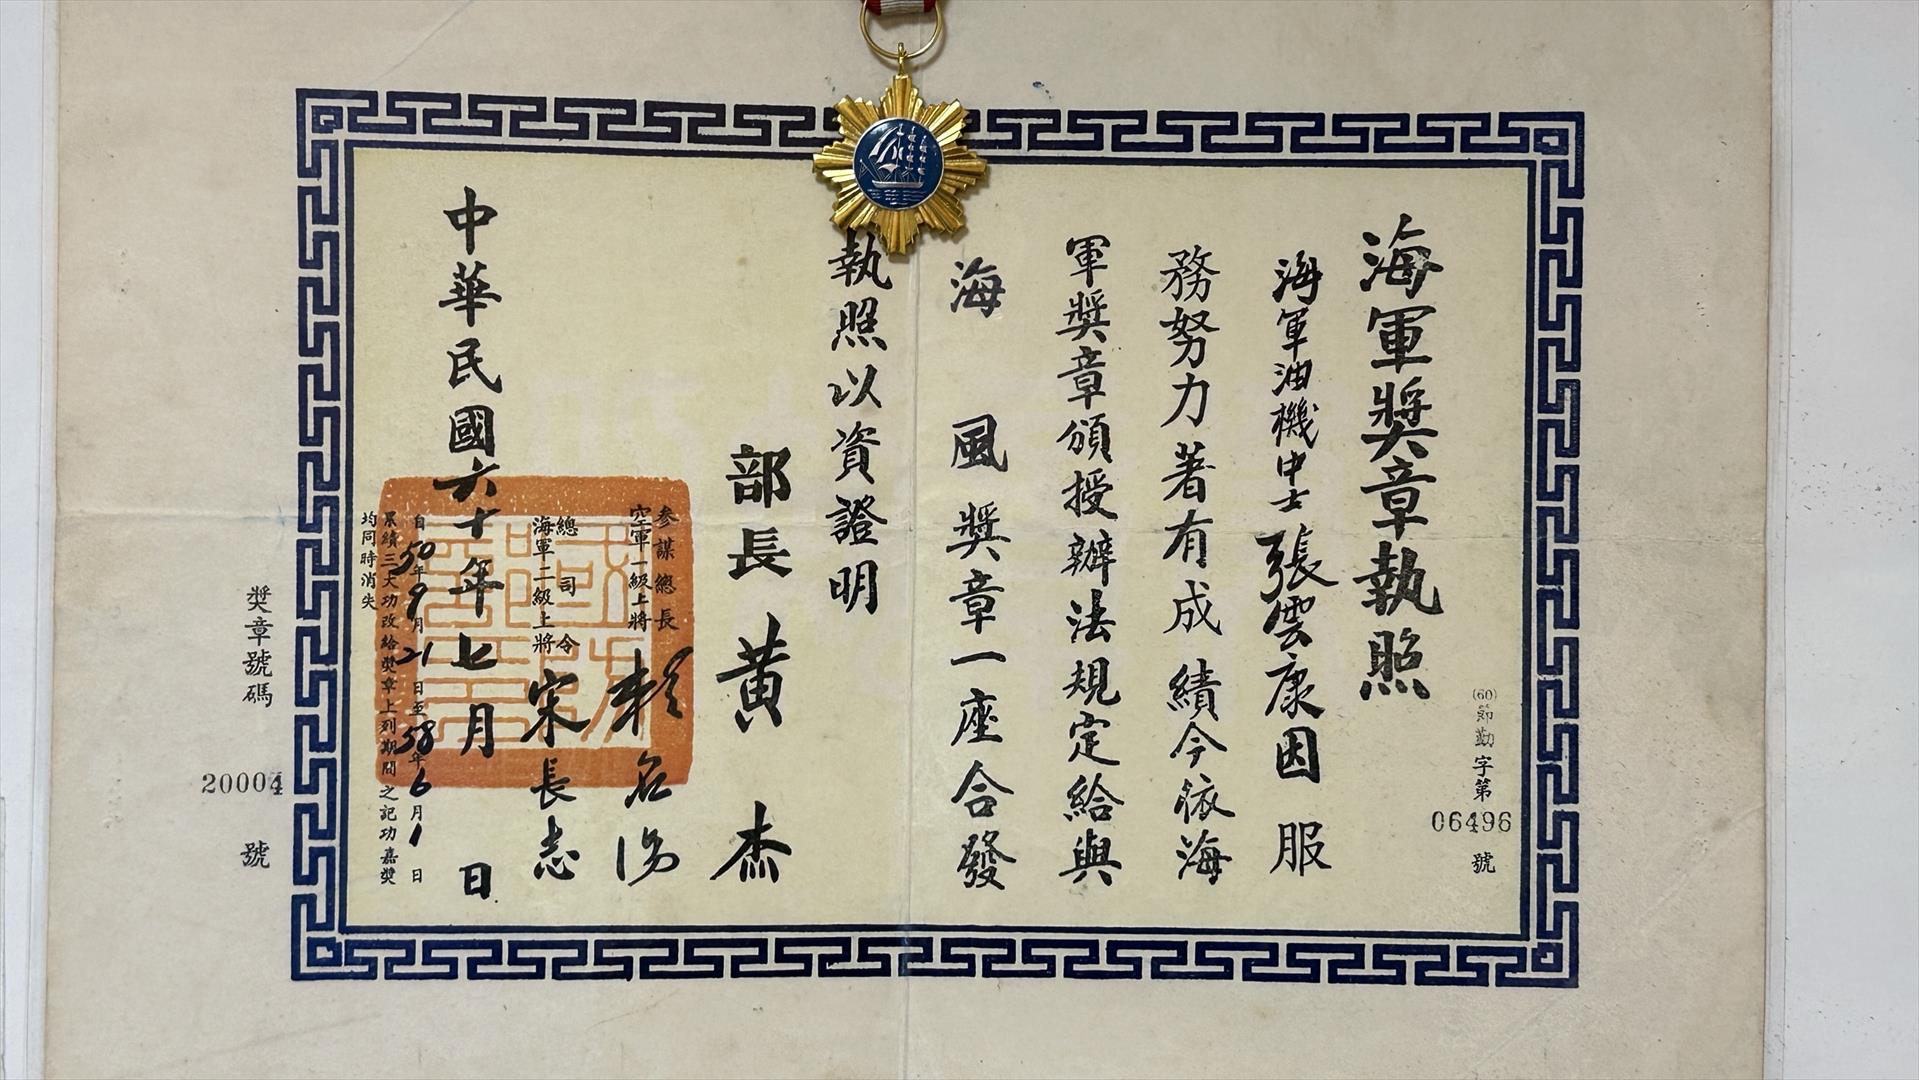 海軍獎章執照
(60)節勤字第06496號
海軍油機中士張雲康因服
務努力著有成績今依海
軍獎章頒授辦法規定給與
海風獎章一座合發
執照以資證明
部長黃杰
參謀總長
空軍一級上將
賴名湯
總司令
海軍二級上將
宋長志
中華民國六十年七月日
自50年9月21日至58年6月1日
累績三大功改給獎章上列期間之記功嘉獎
均同時消失
獎章號碼20004號